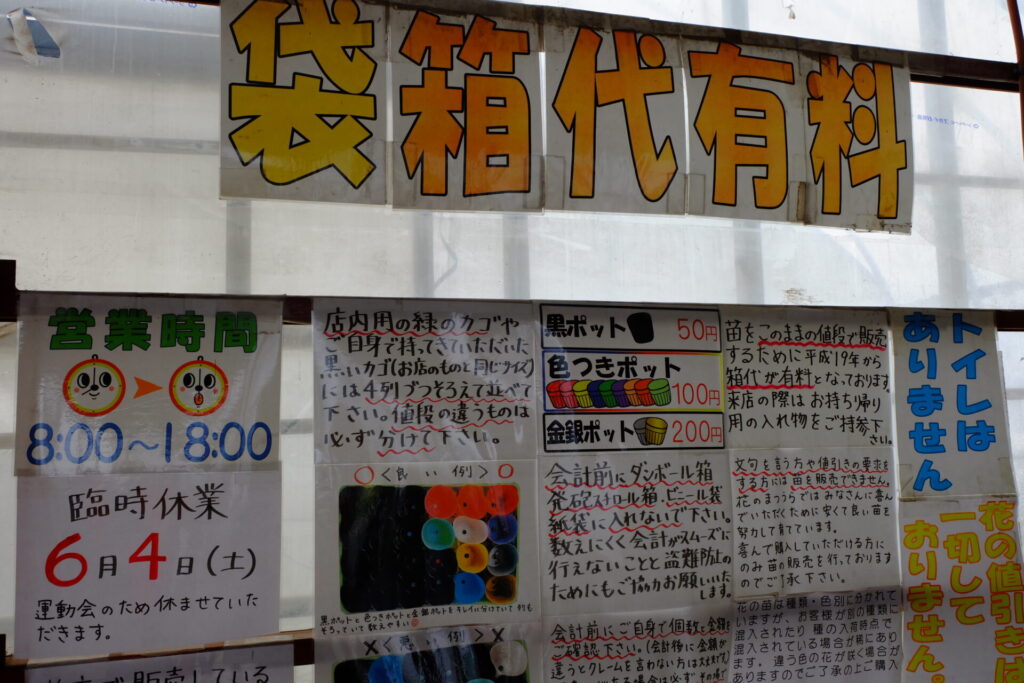 袋箱代有料
営業時間
8:00～18:00
臨時休業
6月4日(土)
運動会のため休ませていた
だきます。
店内用の緑のカゴや
ご自身で持ってきていただいた
黒いカゴ(お店のものと同じサイズ)
には4列づつそろえて並べて
下さい。値段の違うものは
必ず分けて下さい。
○<良い例>○
黒ポットと色つきポットと金銀ポットをキレイに分けていて列も
そろっていて数えやすい
黒ポット 50円
色つきポット
100円
金銀ポット 200円
会計前にダンボール箱
発砲スチロール箱、ビニール袋
紙袋に入れないで下さい。
数えにくく会計がスムーズに
行えないことと盗難防止の
ためにもご協力お願いいた
します。
会計前にご自身で個数と金額を
ご確認下さい。(会計後に金額が
違うとクレームを言わない方は大丈夫です
苗をこのままの値段で販売
するために平成19年から
箱代が有料となっております。
来店の際はお持ち帰り
用の入れ物をご持参下
さい。
文句を言う方や値引きの要求を
する方には苗を販売できません。
花のまつうらではみなさんに喜ん
でいただくために安くて良い苗を
努力して育てています。
喜んで購入していただける方に
のみ苗の販売を行っております
のでご了承下さい。
花の苗は種類・色別に分かれて
いますが、お客様が別の種類に
混入されたり種の入荷時点で
混入されている場合が稀にあり
ます。違う色の花が咲く場合が
ありますのでご了承の上ご購入
トイレは
ありません
花の値引きは
一切して
おりません。